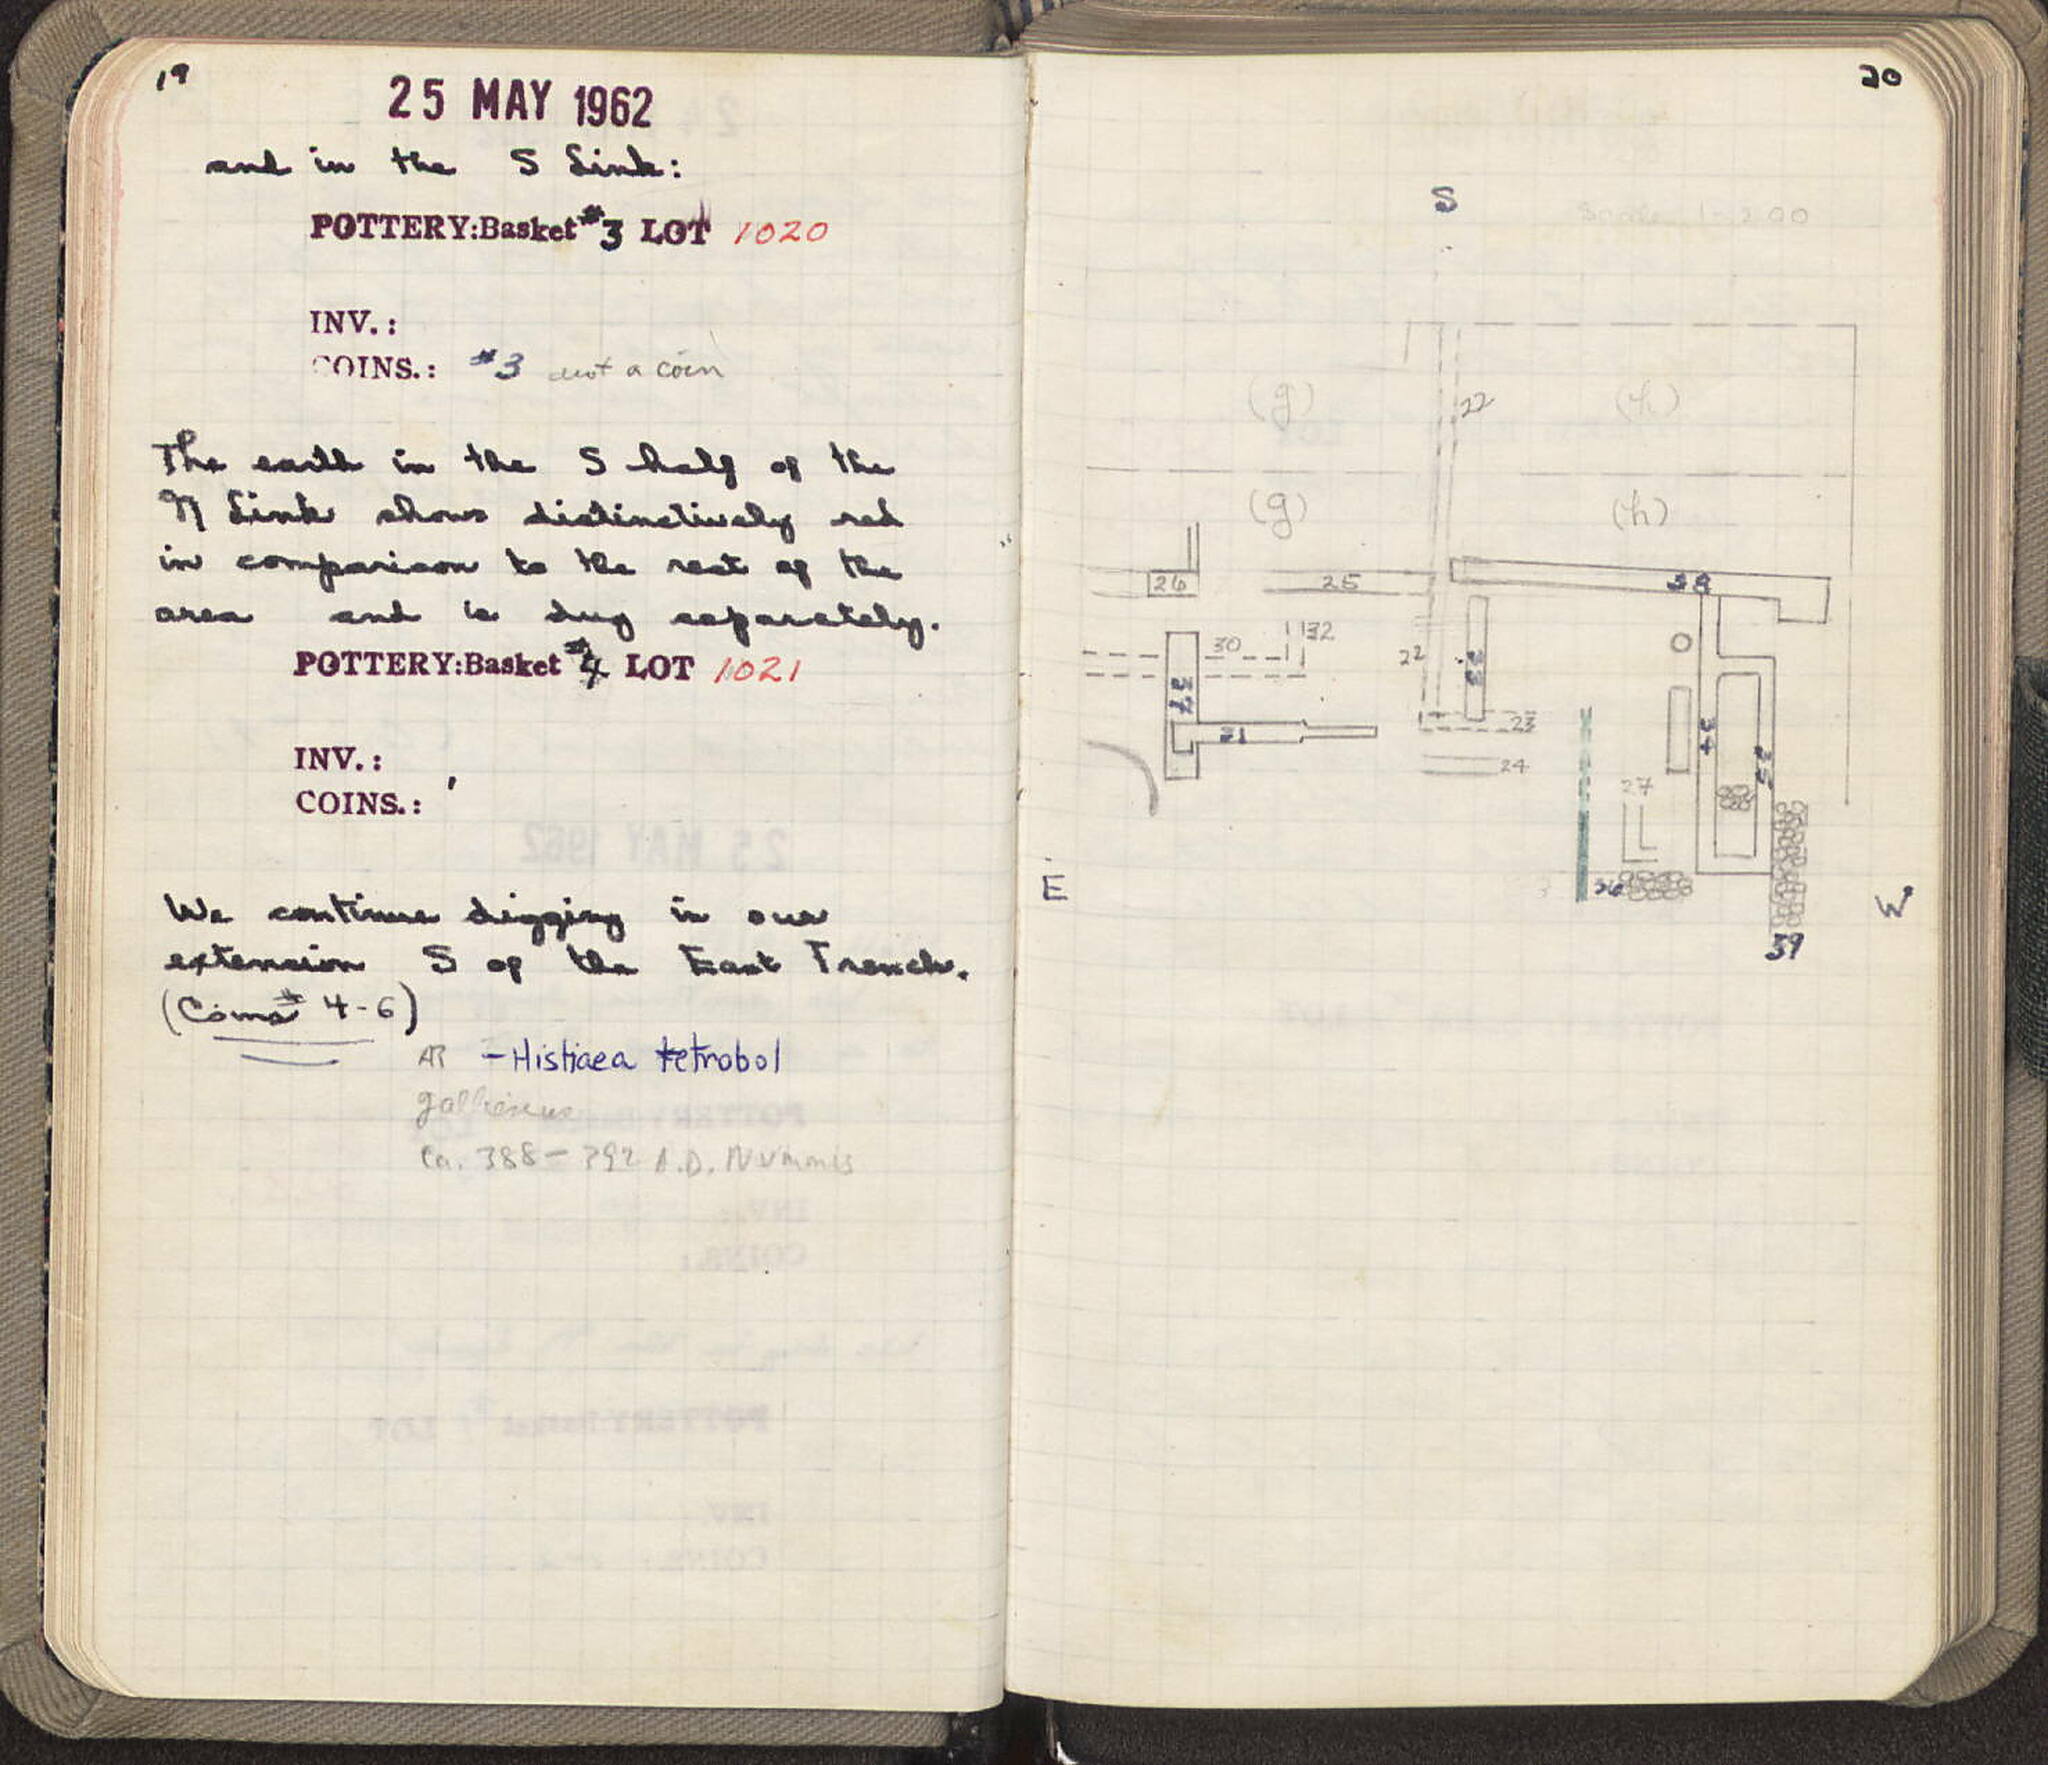 19
25 MAY 1962
and in the S Link:
POTTERY:Basket #3 LOT 1020
INV.:
COINS.: #3 not a coin
The earth in the S half of the
N Link shows distinctively red
in comparison to the rest of the
area and is dug separately.
POTTERY:Basket #4 LOT 1021
INV.:
COINS.:
We continue digging in our
extension S of the East Trench.
(Coins # 4-6)
AR - Histiaea tetrobol
gallienus
Ca. 388-392 A.D. Nummis
20
S
Scale 1-200
(g) 22 (h)
(g) (h)
26 25 38
30 32 22 33
37
31 23 34 35
24
27
E 36 W
39